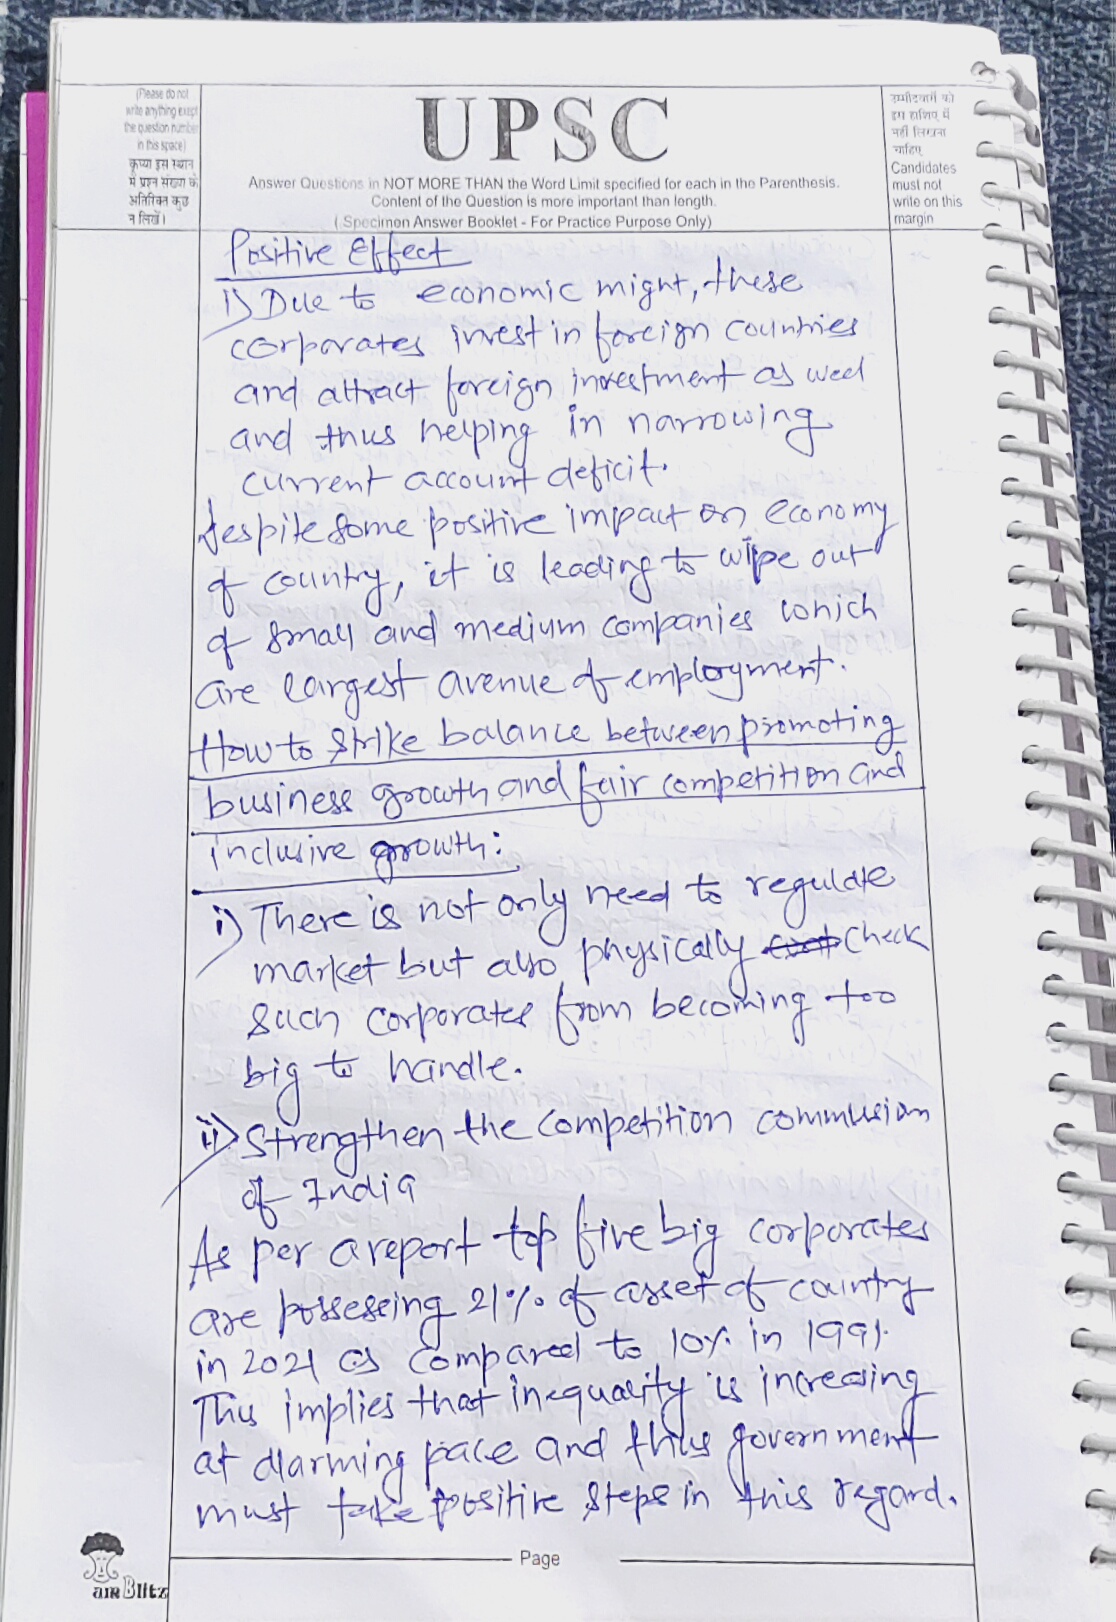 (Please do not
write anything exept
the question number
in this space)
कृप्या इस स्थान
में प्रश्न संख्या के
अतिरिक्त कुछ
न लिखें।
UPSC
Answer Questions in NOT MORE THAN the Word Limit specified for each in the Parenthesis.
Content of the Question is more important than length.
( Specimen Answer Booklet - For Practice Purpose Only)
उम्मीदवारों को
इस हाशिए में
नहीं लिखना
चाहिए
Candidates
must not
write on this
margin
Positive Effect
i) Due to economic might, these
corporates invest in foreign countries
and attract foreign investment as well
and thus helping in narrowing
current account deficit.
despite some positive impact on economy
of country, it is leading to wipe out
of small and medium companies which
are largest avenue of employment.
How to strike balance between promoting
business growth and fair competition and
inclusive growth:
i) There is not only need to regulate
market but also physically check
such corporates from becoming too
big to handle.
ii) Strengthen the competition commission
of India
As per a report top five big corporates
are possessing 21% of asset of country
in 2021 as compared to 10% in 1991.
This implies that inequality is increasing
at alarming pace and thus government
must take positive steps in this regard.
Page
aimBlitz